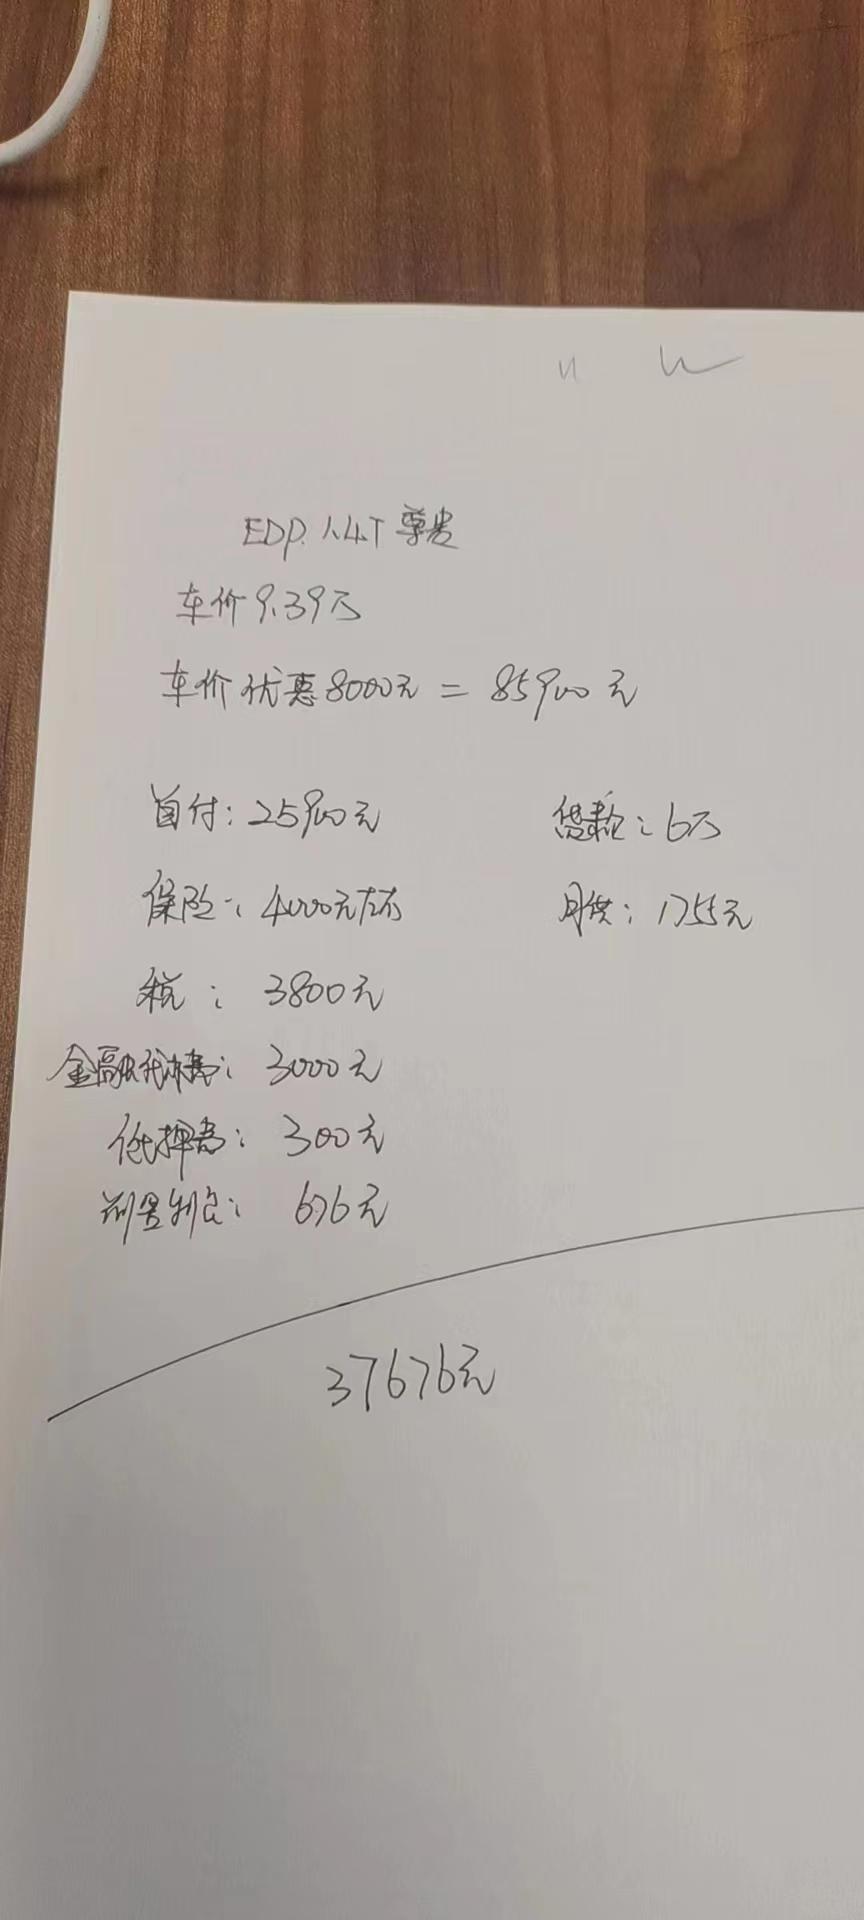 EDP. 1.4T 尊贵
车价9.39万
车价优惠8000元 = 85900元
首付: 25900元
贷款: 6万
保险: 4000元左右
月供: 1755元
税: 3800元
金融代办费: 3000元
低押费: 300元
前置利息: 676元
37676元